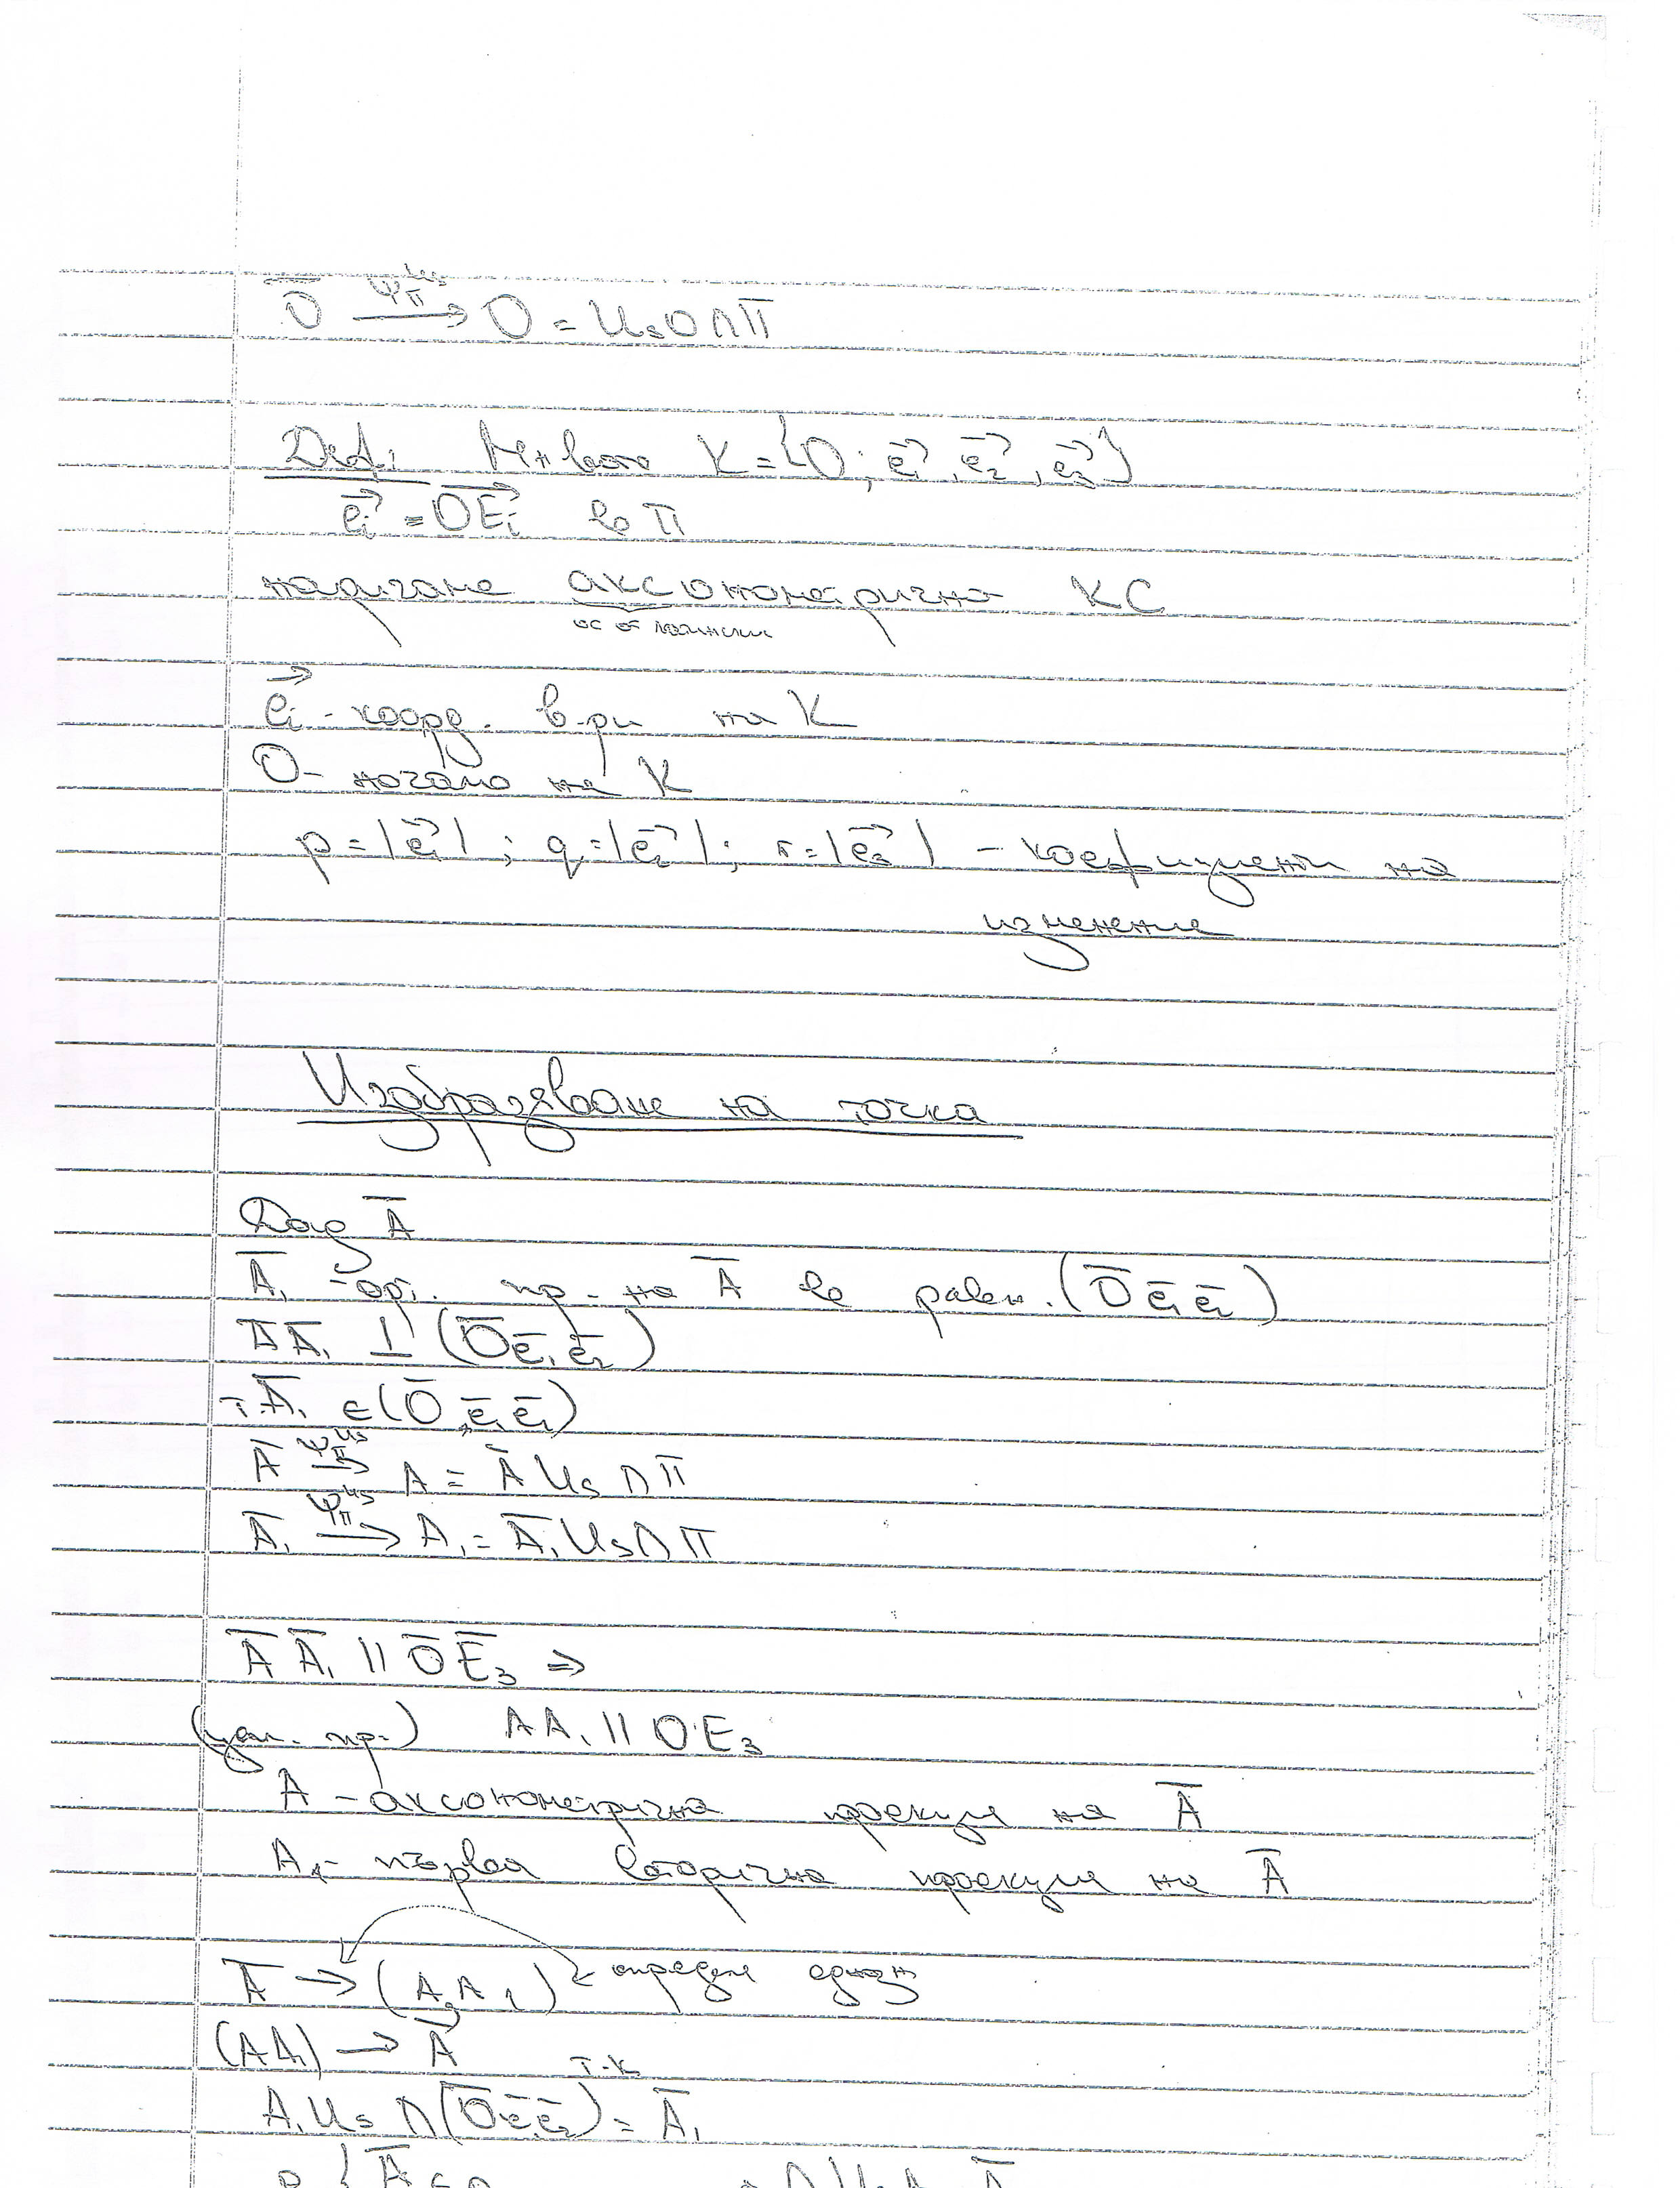 Ō ψ_π^{Us} → O = UsO∩π
Деф. Мн-вото K = {O; e₁→, e₂→, e₃→}
eᵢ→ = OEᵢ→ в π
наричаме аксонометрична КС
ос от латински
eᵢ→ - коорд. в-ри на K
O - начало на K
p = |e₁→|; q = |e₂→|; r = |e₃→| - коефициенти на
изменение
Изобразяване на точка
Дад Ā
Ā₁ - орт. пр. на Ā в равн. (Ō ē₁ ē₂)
ĀĀ₁ ⊥ (Ō ē₁ ē₂)
т. Ā₁ ∈ (Ō, ē₁ ē₂)
Ā ψ_π^{Us} → A = Ā Us ∩ π
Ā₁ ψ_π^{Us} → A₁ = Ā₁ Us ∩ π
Ā Ā₁ || Ō Ē₃ ⇒
(усп. пр.) AA₁ || OE₃
A - аксонометрична проекция на Ā
A₁ - първа вторична проекция на Ā
Ā → (A, A₁) определя еднозн
(AA₁) → Ā
т.к.
A₁Us ∩ (Ō ē₁ ē₂) = Ā₁